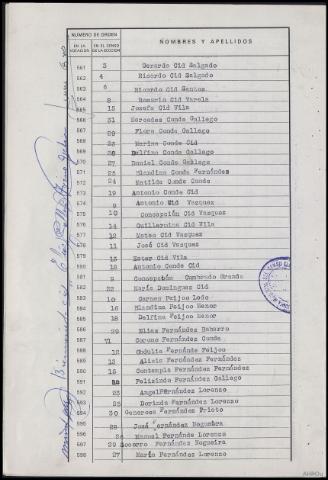 NUMERO DE ORDEN
NOMBRES Y APELLIDOS
EN LA VOTACION
EN EL CENSO DE LA SECCION
561 3 Gerardo Cid Salgado
562 4 Ricardo Cid Salgado
563 6 Ricardo Cid Santos
564 8 Rosario Cid Varela
565 15 Josefa Cid Vila
566 31 Mercedes Conde Gallego
567 29 Flora Conde Gallego
568 23 Marina Conde Cid
569 26 Delfina Conde Gallego
570 27 Daniel Conde Gallego
571 25 Blandina Conde Fernández
572 24 Matilde Conde Conde
573 19 Antonio Conde Cid
574 9 Antonio Cid Vazquez
575 10 Concepción Cid Vazquez
576 14 Guillermina Cid Vila
577 12 Mateo Cid Vazquez
578 11 José Cid Vazquez
579 13 Ester Cid Vila
580 18 Antonio Conde Cid
581 Concepción Cumbrado Grande
582 22 María Dominguez Cid
583 10 Carmen Feijoo Lodo
584 16 Blandina Feijoo Menor
585 18 Delfina Feijoo Menor
586 29 Elias Fernández Babarro
587 71 Carmen Fernández Conde
588 12 Obdulia Fernández Feijoo
589 15 Alicia Fernández Fernández
590 16 Contempla Fernández Fernández
591 22 Felisinda Fernández Gallego
592 23 Angel Fernández Lorenzo
593 25 Dorinda Fernández Lorenzo
594 30 Generosa Fernández Prieto
595 28 José Fernández Nogueira
596 26 Manuel Fernánde Lorenzo
597 29 Socorro Fernández Nogueira
598 27 María Fernández Lorenzo
AHPOu